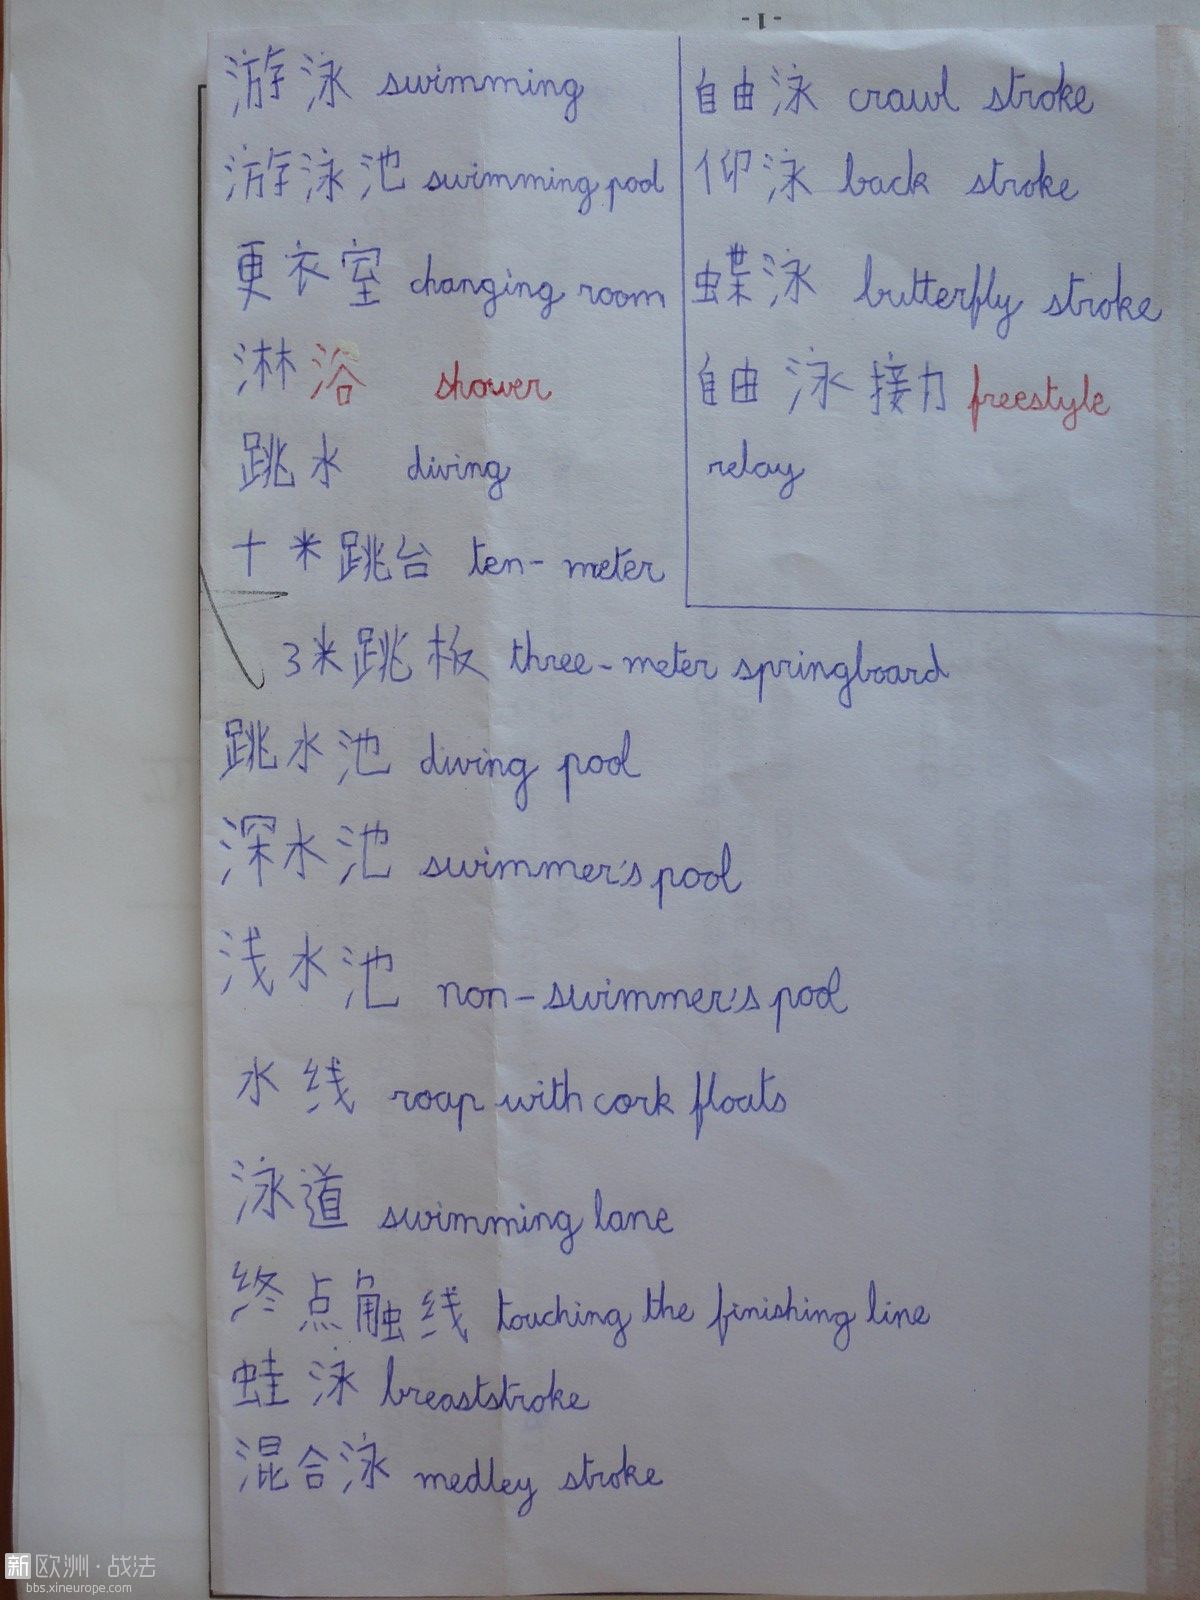 - 1 -
游泳 swimming
游泳池 swimming pool
更衣室 changing room
淋浴 shower
跳水 diving
十米跳台 ten-meter
3米跳板 three-meter springboard
跳水池 diving pool
深水池 swimmer's pool
浅水池 non-swimmer's pool
水线 roap with cork floats
泳道 swimming lane
终点触线 touching the finishing line
蛙泳 breaststroke
混合泳 medley stroke
自由泳 crawl stroke
仰泳 back stroke
蝶泳 butterfly stroke
自由泳接力 freestyle
relay
新欧洲·战法
bbs.xineurope.com